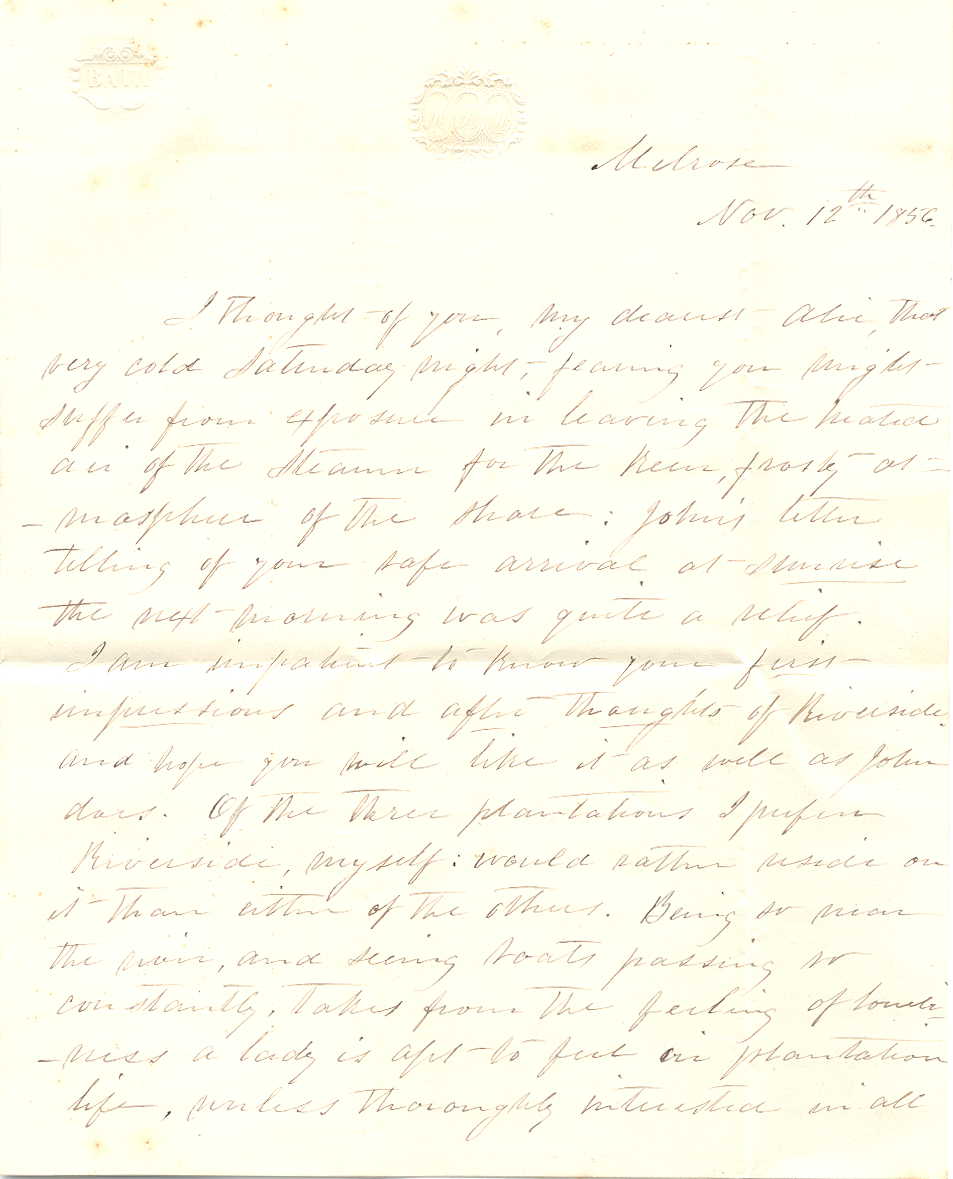 BATH
Melrose
Nov. 12th 1856.
I thought of you, my dearest Alie, that
very cold Saturday night, fearing you might
suffer from exposure in leaving the heated
air of the Steamer for the keen, frosty at-
-mosphere of the shore: John's letter
telling of your safe arrival at sunrise
the next morning was quite a relief.
I am impatient to know your first
impressions and after thoughts of Riverside
and hope you will like it as well as John
does. Of the three plantations I prefer
Riverside, myself: would rather reside on
it than either of the others. Being so near
the river, and seeing boats passing so
constantly, takes from the feeling of loneli-
-ness a lady is apt to feel in plantation
life, unless thoroughly interested in all